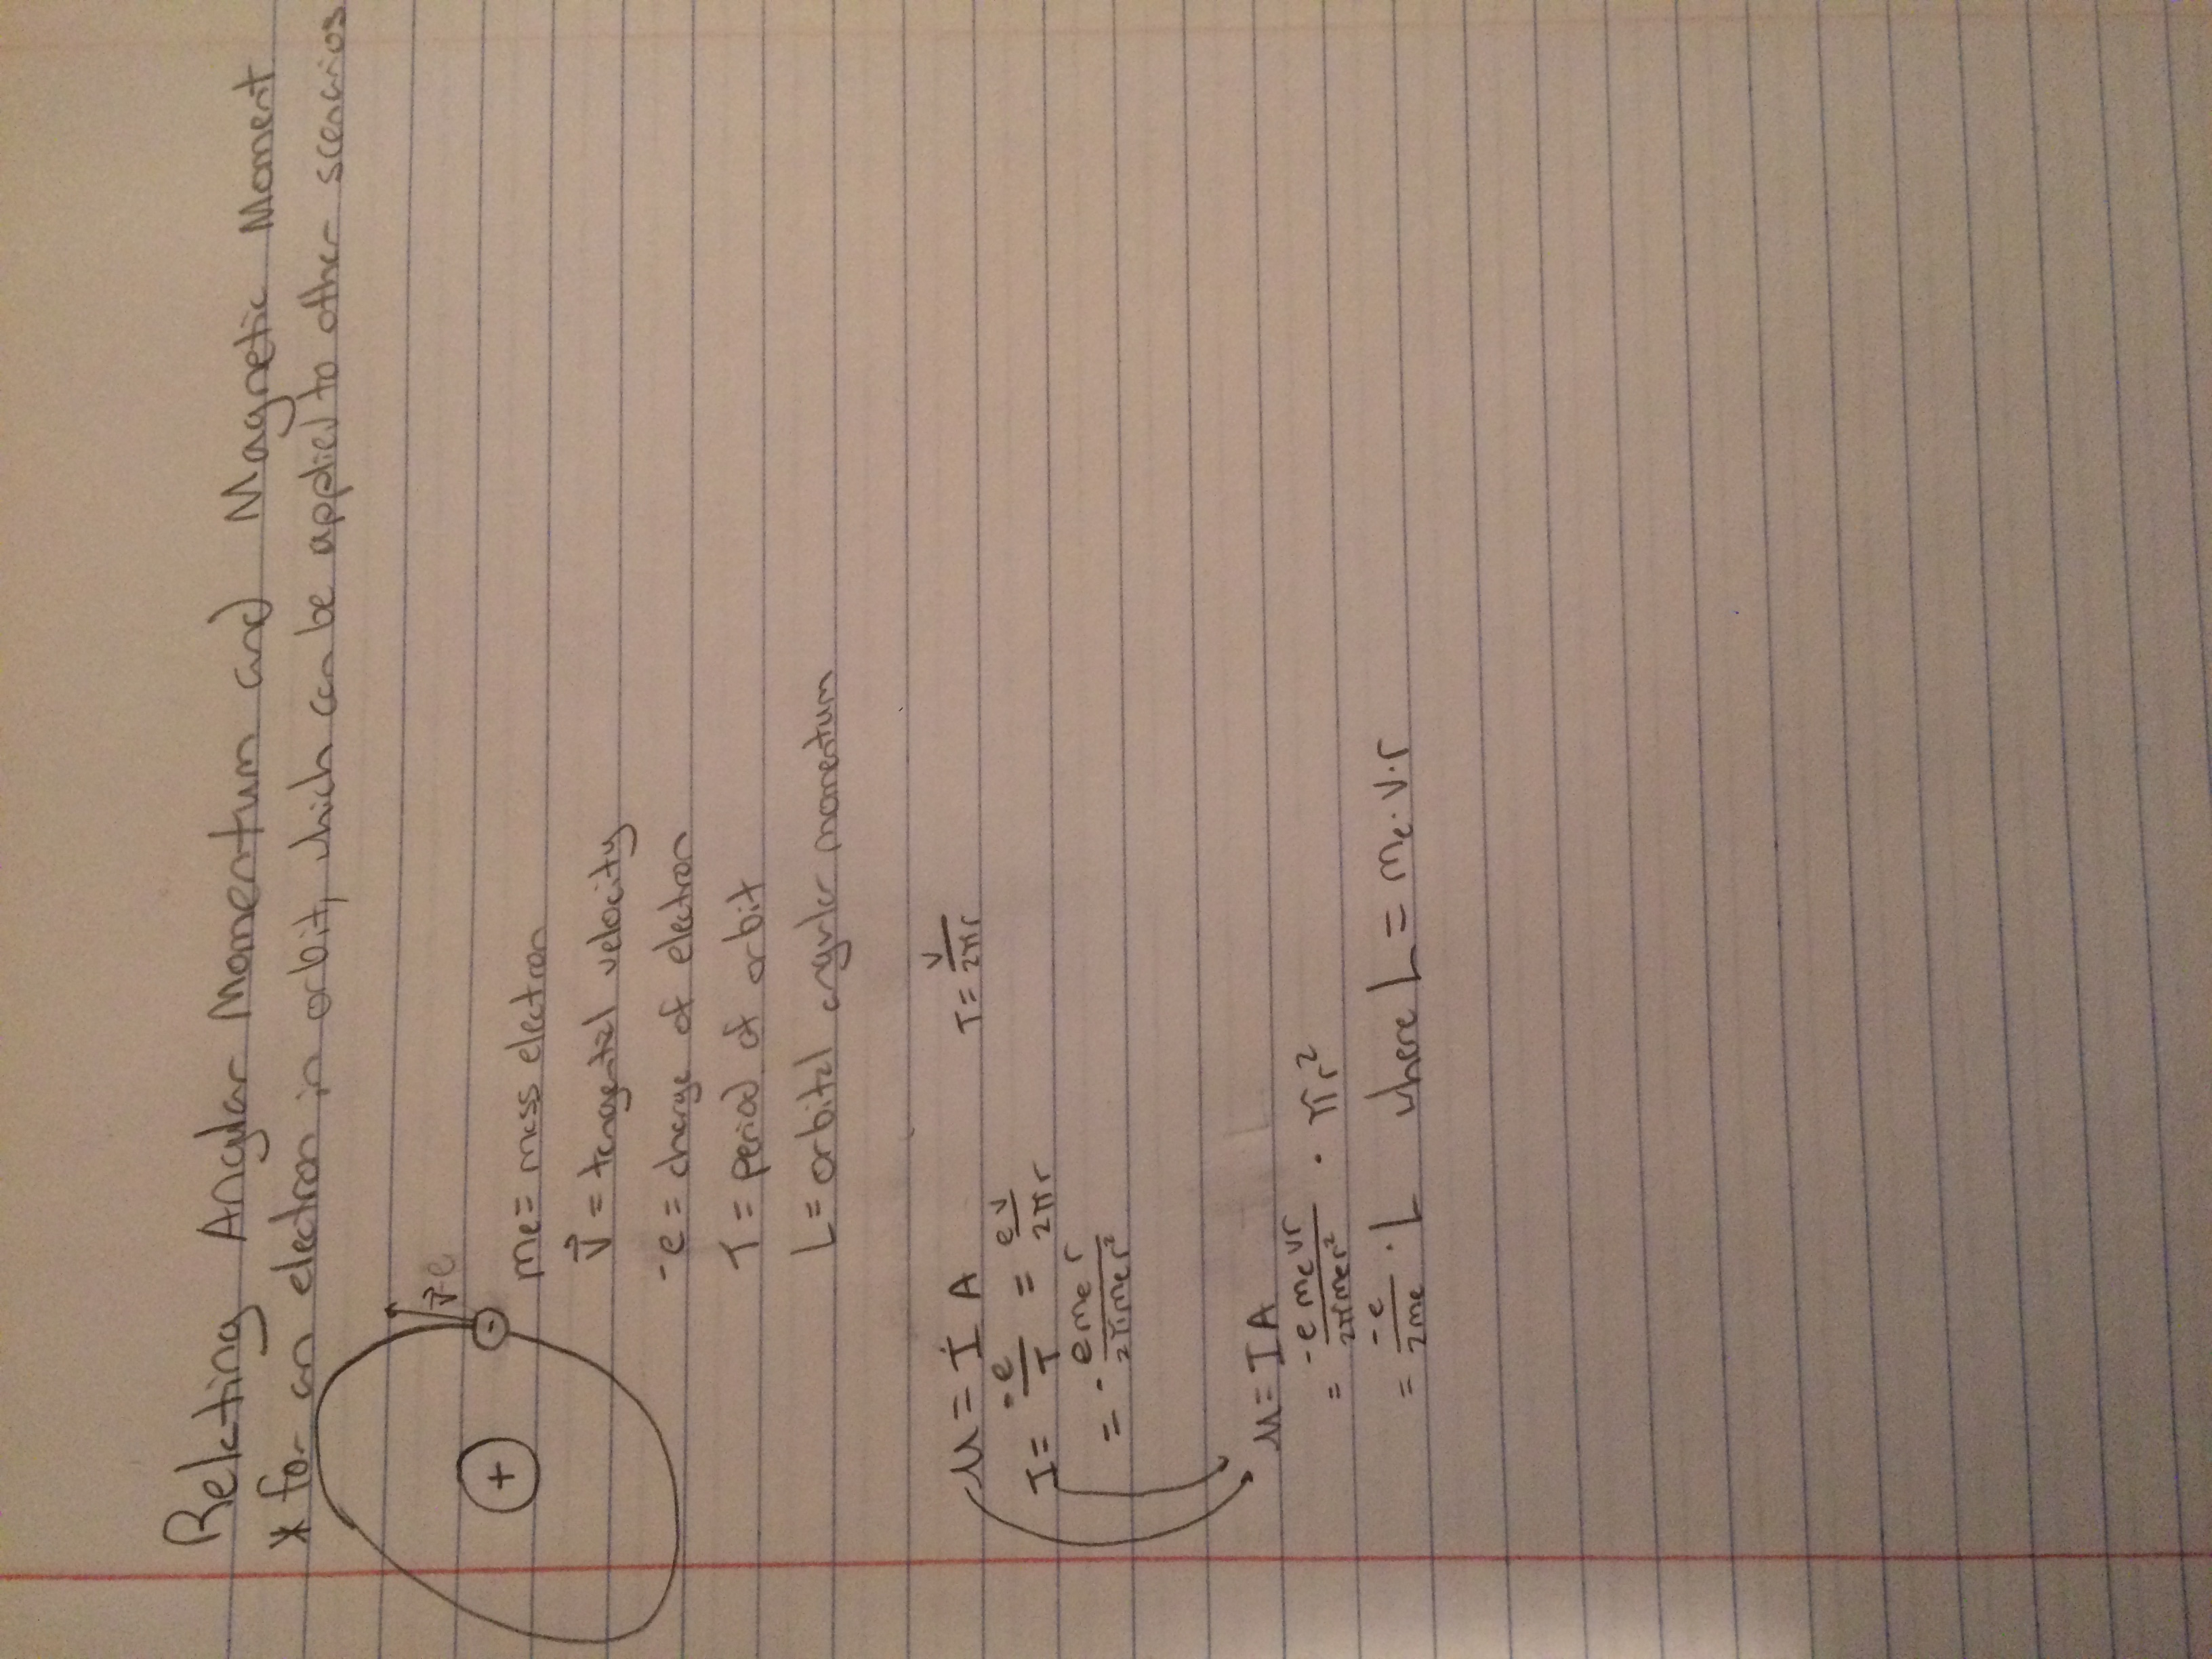 Relating Angular Momentum and Magnetic Moment
* for an electron in orbit, which can be applied to other scenarios
v⃗ -e
+ -
me = mass electron
v⃗ = tangental velocity
-e = charge of electron
T = period of orbit
L = orbital angular momentum
μ = I A T = v/2πr
I = -e/T = ev/2πr
= - e me r/2πmer²
μ = IA
= -e me vr/2πmer² · πr²
= -e/2me · L where L = me · v · r